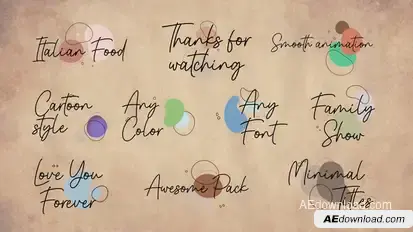 Italian Food
Thanks for
watching
Smooth animation
Cartoon
style
Any
Color
Any
Font
Family
Show
Love You
Forever
Awesome Pack
Minimal
Titles
AEdownload.com
AEdownload.com